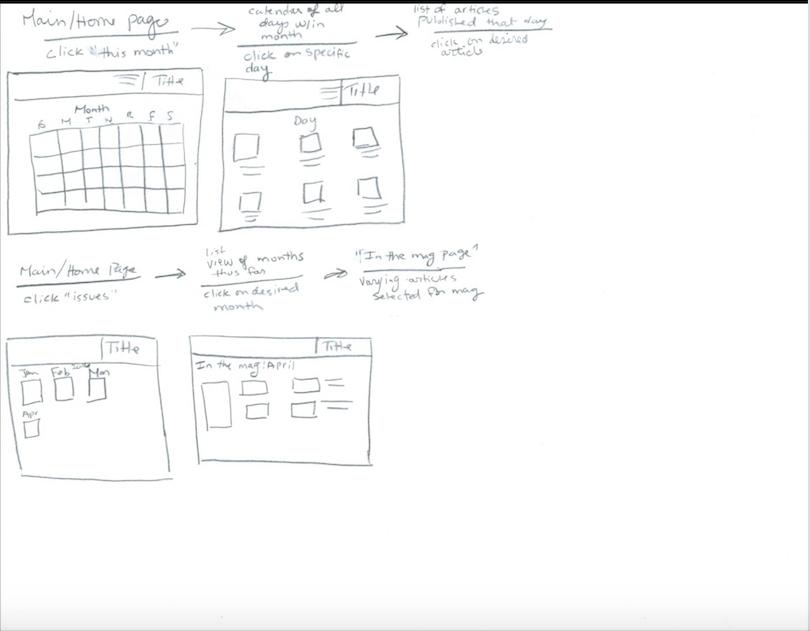 Main/Home page
click "this month"
calendar of all
days w/in
month
click on specific
day
list of articles
published that day
click on desired
article
Title
Month
S M T W R F S
Title
Day
Main/Home Page
click "issues"
list
view of months
thus far
click on desired
month
"In the mag page"
varying articles
selected for mag
Title
Jan Feb Mar
Apr
Title
In the mag: April